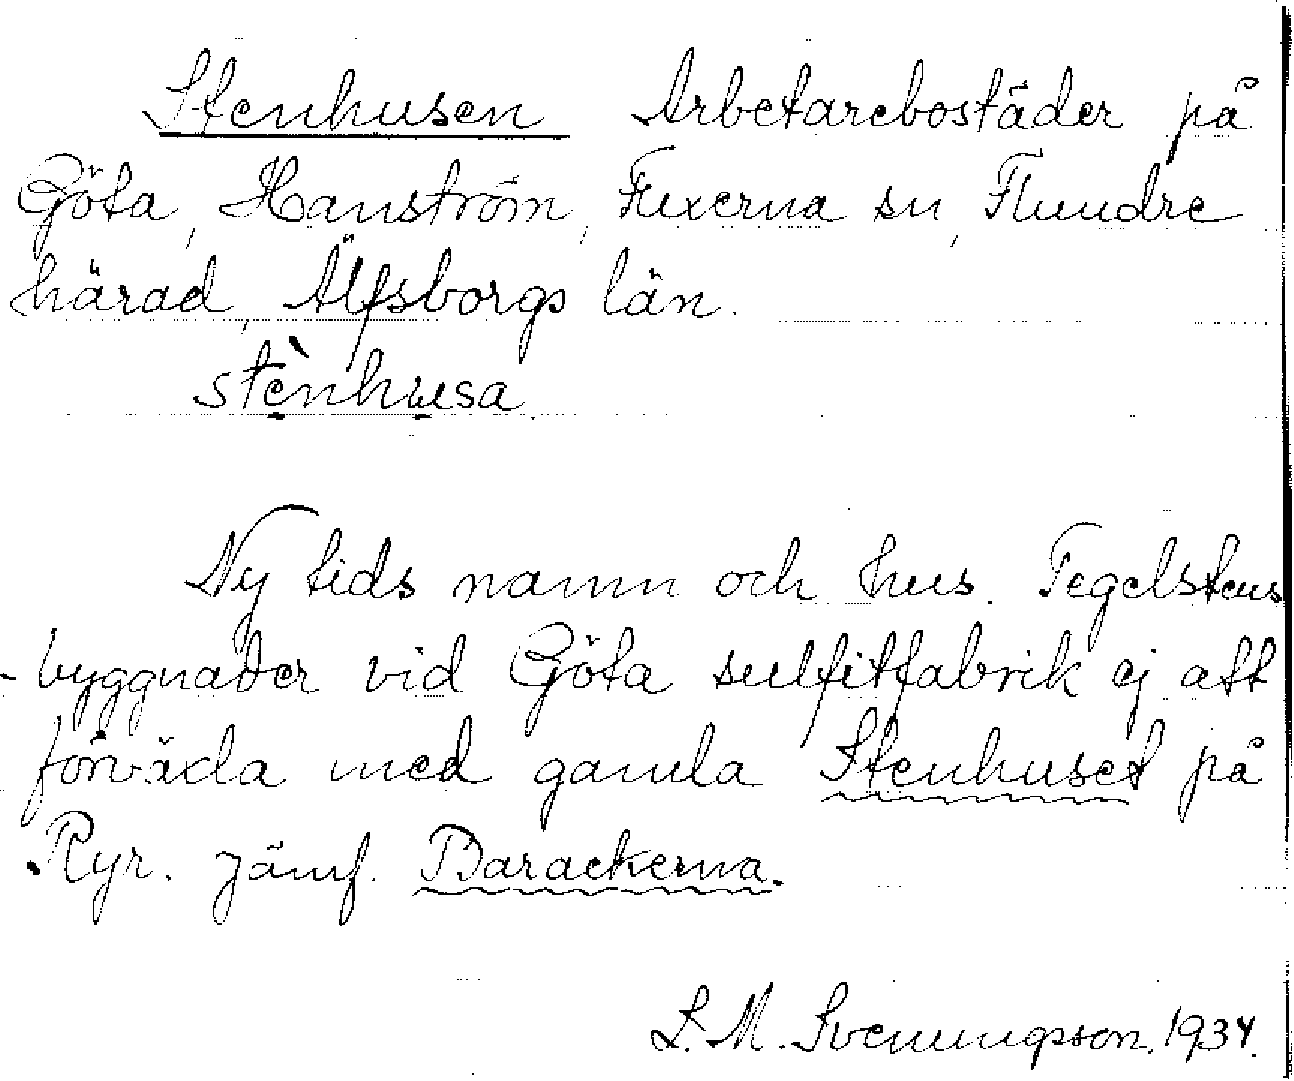 Stenhusen Arbetarebostäder på
Göta, Hanström, Fuxerna sn, Flundre
härad, Älfsborgs län.
stènhusa.
Ny tids namn och hus. Tegelstens
-byggnader vid Göta sulfitfabrik ej att
förväxla med gamla Stenhuset på
Ryr. Jämf. Barackerna.
S. M. Svenungsson. 1934.